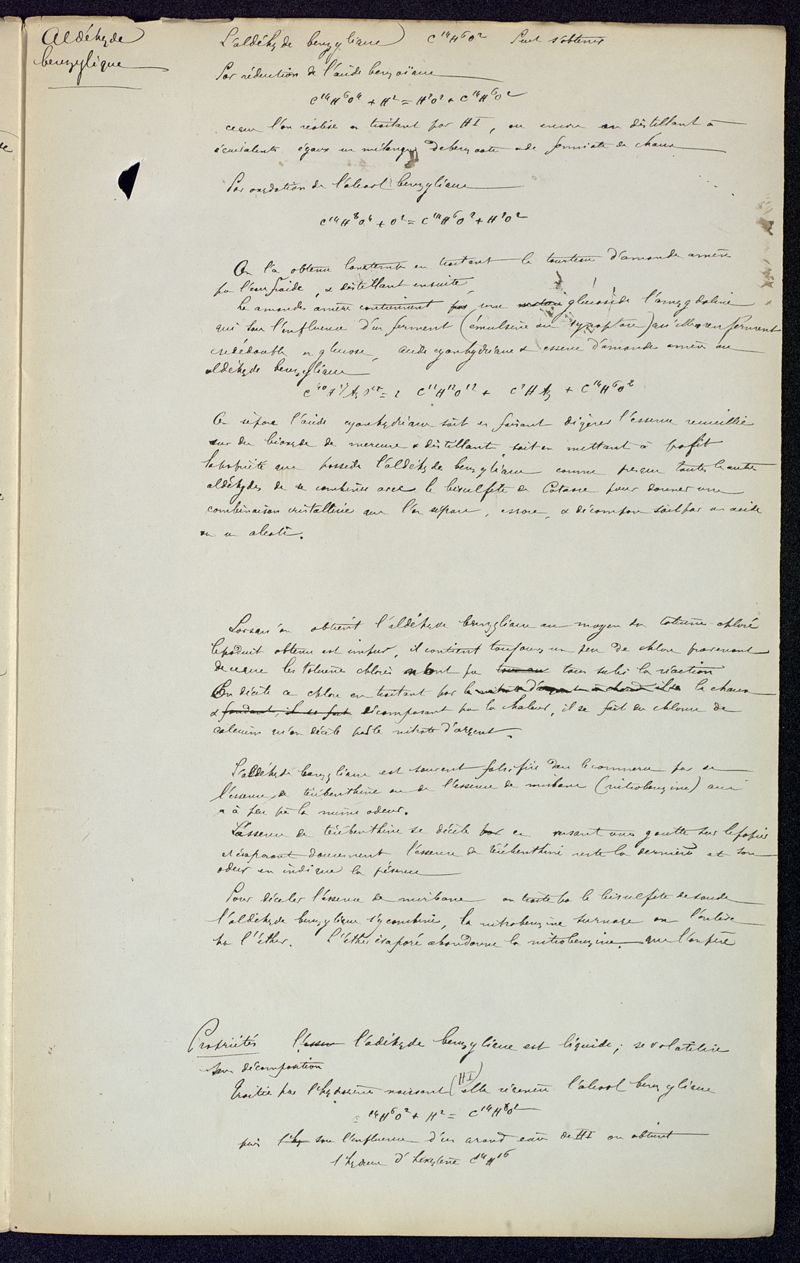 Aldéhyde
benzylique
L'aldéhyde benzylique C¹⁴H⁶O² Peut s'obtenir
Par réduction de l'acide benzoïque
C¹⁴H⁶O⁴ + H² = H²O² + C¹⁴H⁶O²
ce que l'on réalise en traitant par HI, ou encore en distillant à
équivalents égaux un mélange de benzoate & de formiate de chaux
Par oxydation de l'alcool benzylique
C¹⁴H⁸O⁴ + O² = C¹⁴H⁶O² + H²O²
On l'a obtenu longtemps en traitant le tourteau d'amande amère
par l'eau froide, & distillant ensuite
Les amandes amères contiennent une glucoside l'amygdaline
qui sous l'influence d'un ferment (émulsine ou synaptase) qu'elles renferment
se dédouble en glucose, acide cyanhydrique & essence d'amande amère ou
aldéhyde benzylique
= 2 C¹²H¹²O¹² + C²HAz + C¹⁴H⁶O²
On sépare l'acide cyanhydrique soit en faisant digérer l'essence recueillie
sur du bioxyde de mercure & distillant, soit en mettant à profit
la propriété que possède l'aldéhyde benzylique comme presque toutes les autres
aldéhydes de se combiner avec le bisulfite de Potasse pour donner une
combinaison cristalline que l'on sépare, essore, & décompose soit par un acide
ou un alcali.
Lorsqu'on obtient l'aldéhyde benzylique au moyen du toluène chloré
le produit obtenu est impur, il contient toujours un peu de chlore provenant
de ce que les toluènes chlorés n'ont pas tous subi la réaction
On décèle ce chlore en traitant par la chaux
& décomposant par la chaleur, il se fait du chlorure de
calcium qu'on décèle par le nitrate d'argent.
L'aldéhyde benzylique est souvent falsifiée dans le commerce par de
l'essence de térébenthine ou de l'essence de mirbane (nitrobenzine) qui
a à peu près la même odeur.
L'essence de térébenthine se décèle en versant une goutte sur le papier
et évaporant doucement l'essence de térébenthine reste la dernière et son
odeur en indique la présence
Pour déceler l'essence de mirbane on traite par le bisulfite de soude
l'aldéhyde benzylique s'y combine, la nitrobenzine surnage on l'enlève
par l'éther. L'éther évaporé abandonne la nitrobenzine que l'on pèse
Propriétés l'aldéhyde benzylique est liquide, se volatilise
sans décomposition
Traitée par l'hydrogène naissant (HI) elle régénère l'alcool benzylique
C¹⁴H⁶O² + H² = C¹⁴H⁸O²
puis sous l'influence d'un grand excès de HI on obtient
C¹⁴H¹⁶